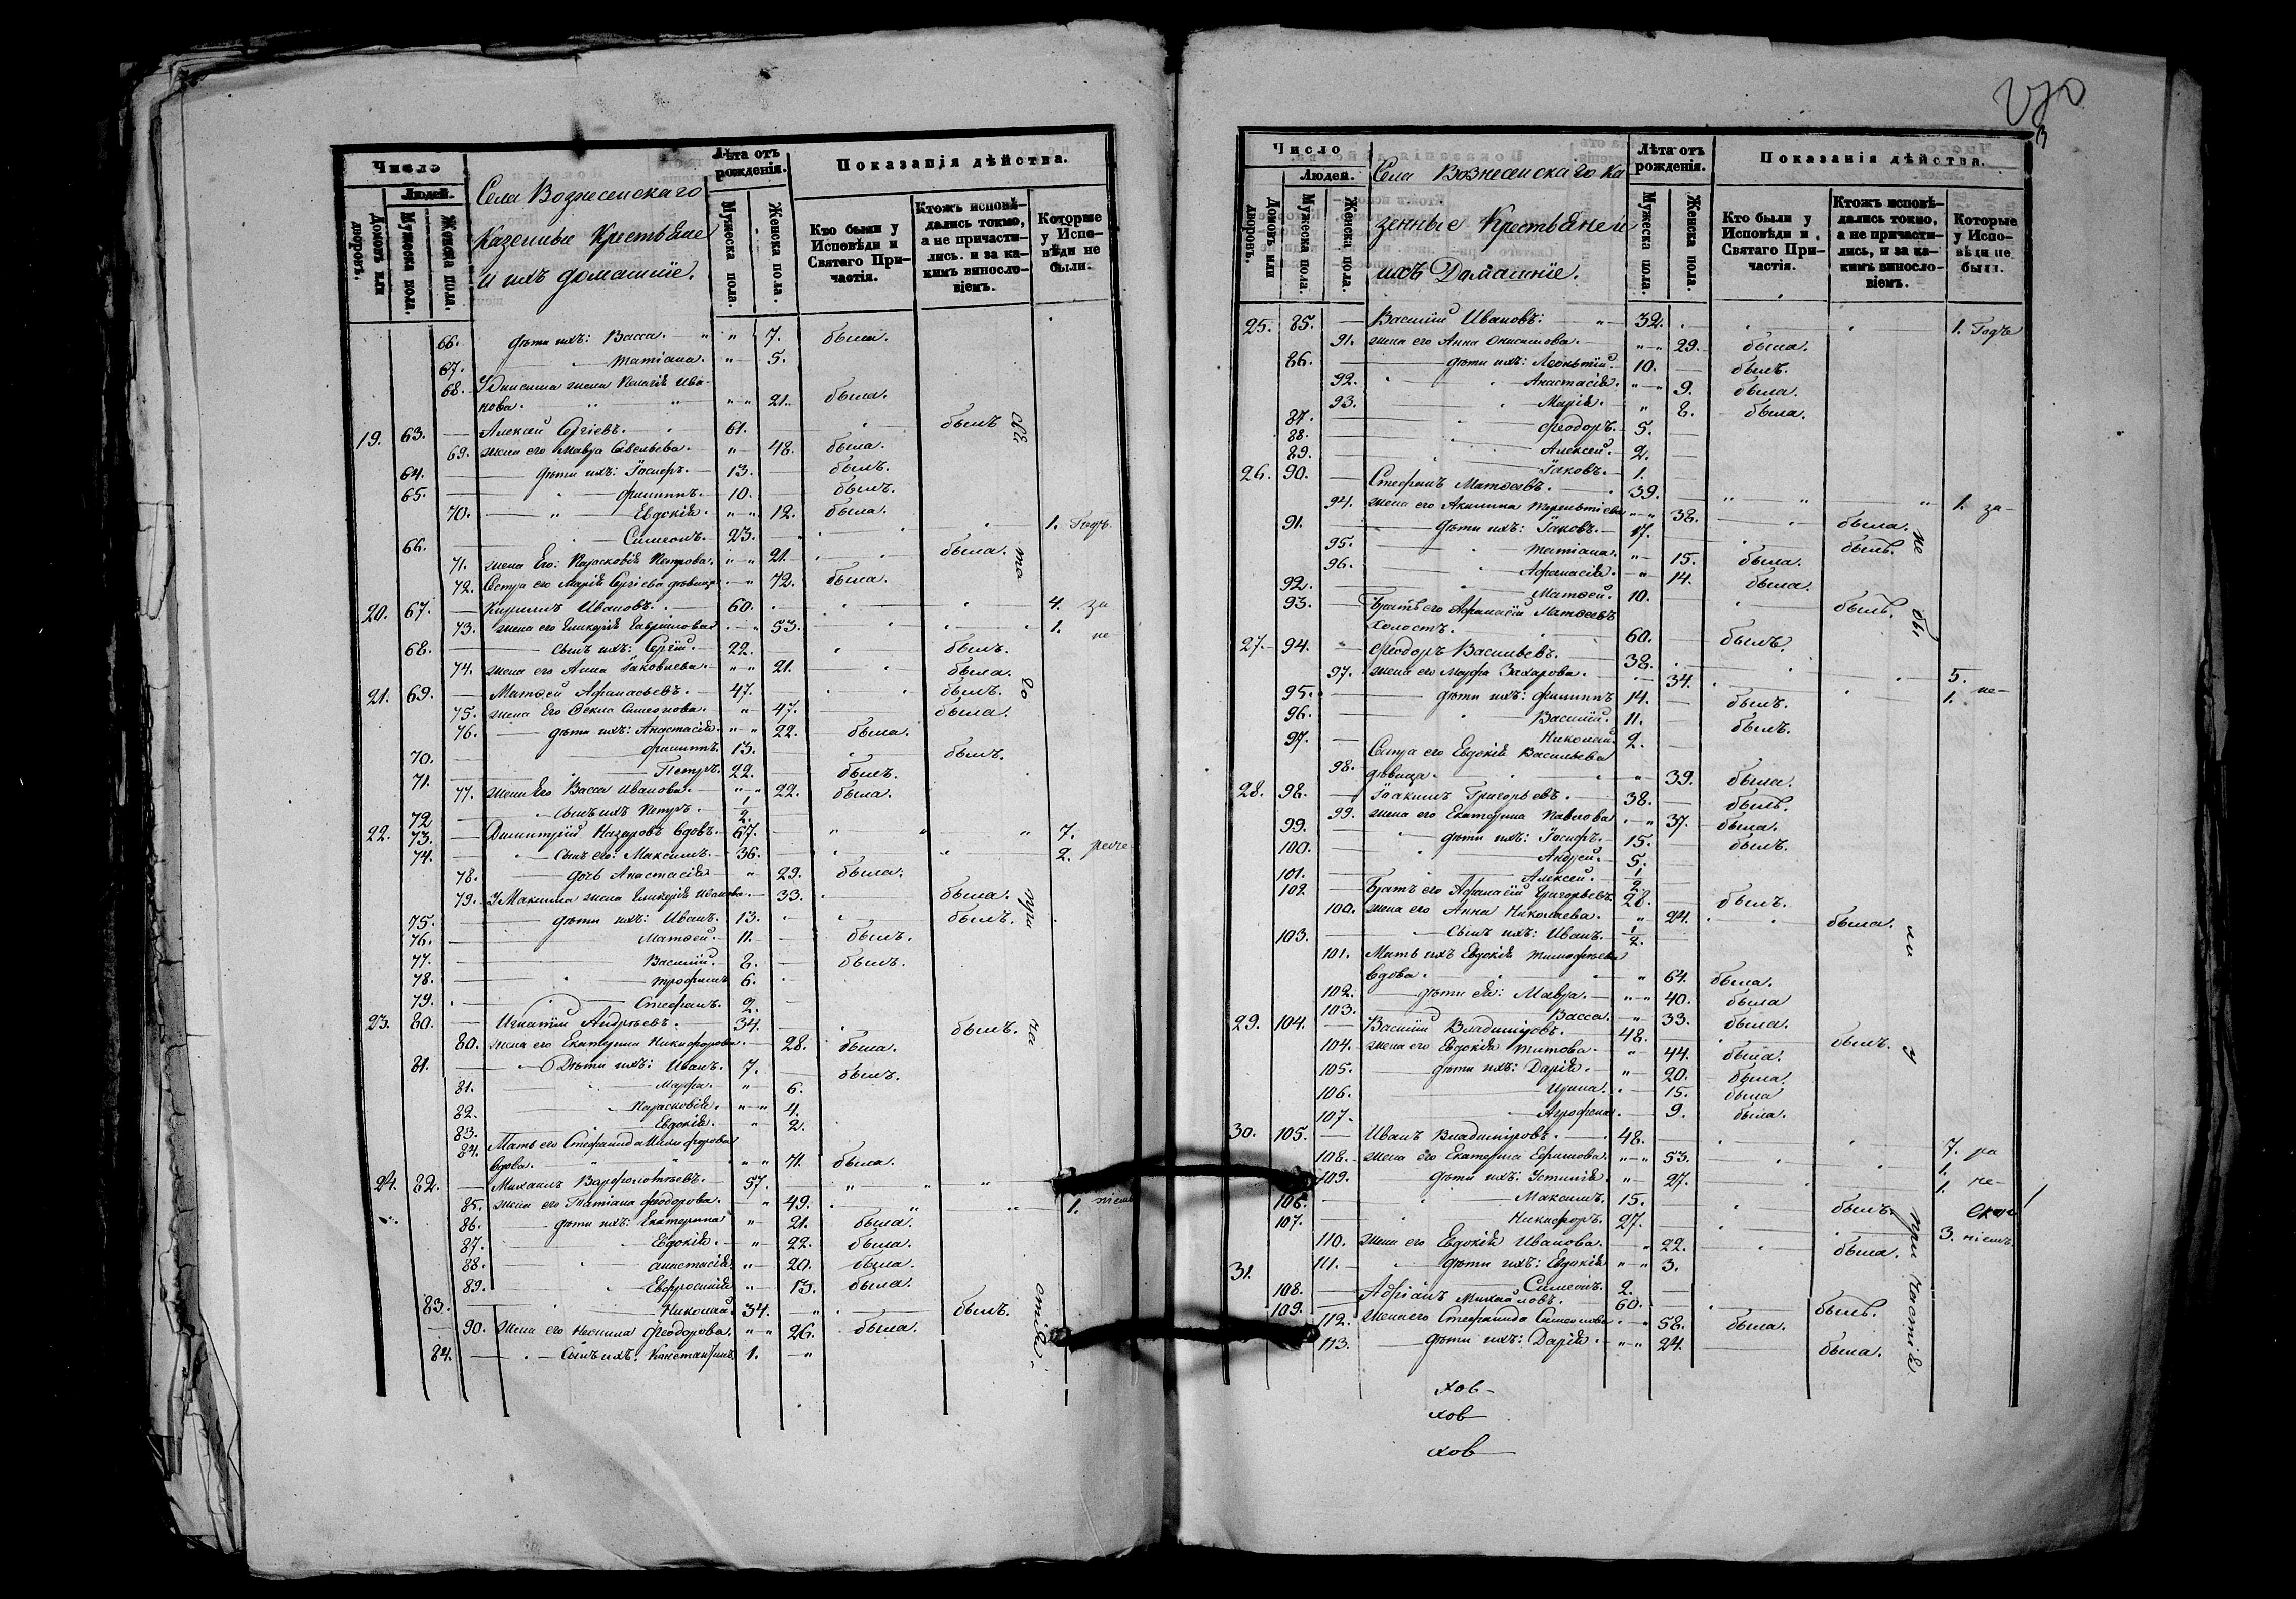 Число
Людей.
Домовъ или дворовъ.
Мужеска пола.
Женска пола.
Села Вознесенскаго
Казенные Крестьяне
и ихъ домашніе.
Лѣта отъ рожденія.
Мужеска пола.
Женска пола.
Показанія дѣйства.
Кто были у Исповѣди и Святаго Причастія.
Ктожъ исповѣдались токмо, а не причастились. и за какимъ винословіемъ.
Которые у Исповѣди не были.
66. дѣти ихъ: Васса. 7. была.
67. Татіана. 5.
68. У Ониси­ма жена Пелагія Ива-
нова. 21. была.
19. 63. Алексѣй Сергіевъ. 61. былъ
69. жена его Мавра Савельева. 48. была.
64. дѣти ихъ: Іосифъ. 13. былъ.
65. Филиппъ. 10. былъ.
70. Евдокія. 12. была.
66. Симеонъ. 23. 1. Годъ.
71. жена Его: Парасковія Петрова. 21. была.
72. Сестра его Марія Сергіева дѣвица 72. была.
20. 67. Кириллъ Ивановъ. 60. 4. за
73. жена его Гликерія Гаврилова 53. 1. не
68. сынъ ихъ: Сергій. 22. былъ.
74. жена его Анна Іаковлева. 21. была.
21. 69. Матѳей Афанасьевъ. 47. былъ.
75. жена Его Ѳекла Симеонова. 47. была.
76. дѣти ихъ: Анастасія. 22. была.
70. Филиппъ. 13. былъ.
71. Петръ. 22. былъ.
77. жена Его Васса Иванова. 22. была.
72 Сынъ ихъ Петръ. 1/2.
22. 73. Димитрій Назаровъ вдовъ. 67. 7.
74. Сынъ его: Максимъ. 36. 2. раче
78. дочь Анастасія 29. была.
79. У Максима жена Гликерія Иванова. 33. была.
75. дѣти ихъ: Иванъ. 13. былъ.
76. Матѳей. 11. былъ.
77. Василій. 8. былъ.
78. Трофимъ 6.
79. Стефанъ. 2.
23. 80. Игнатій Андреевъ. 34. былъ.
80. жена его Екатерина Никифорова. 28. была.
81. Дѣти ихъ: Иванъ. 7. былъ.
81. Марфа. 6.
82. Парасковія. 4.
83. Евдокія. 2.
84. Мать его Стефанида
вдова. 71. была.
24. 82. Михаилъ Варфоломѣевъ. 57.
85. жена его Татіана Феодорова. 49. 1. ніемъ
86. дѣти ихъ: Екатерина 21. была.
87. Евдокія. 22. была.
88. Анастасія 20. была.
89. Евфросинія 13. была.
83. Николай. 34. былъ.
90. жена его Неонила Феодорова. 26. была.
84. Сынъ ихъ: Константинъ. 1.
отсо
то
го
при
ча
стія.
Число
Людей.
Домовъ или дворовъ.
Мужеска пола.
Женска пола.
Села Вознесенскаго Ка
зенные Крестьяне и
ихъ Домашніе.
Лѣта отъ рожденія.
Мужеска пола.
Женска пола.
Показанія дѣйства.
Кто были у Исповѣди и Святаго Причастія.
Ктожъ исповѣдались токмо, а не причастились, и за какимъ винословіемъ.
Которые у Исповѣди не были.
25. 85. Василій Ивановъ: 32. 1. Годъ
91. жена его Анна Онисимова. 29. была.
86. дѣти ихъ: Леонтій. 10. былъ.
92. Анастасія. 9. была.
93. Марія. 8. была.
87. Феодоръ. 5.
88. Алексѣй. 2.
89. Іаковъ. 1.
26. 90. Стефанъ Матѳеевъ. 39. 1. за-
94. жена его Акилина Терентіева 38. была.
91. дѣти ихъ: Іаковъ. 17. былъ.
95. Татіана. 15. была.
96. Афанасія. 14. была.
92. Матѳей. 10.
93. Братъ его Афанасій Матѳеевъ
Холостъ. 60. былъ.
27. 94. Феодоръ Васильевъ. 38. 5.
97. жена его Марфа Захарова. 34. 1. не-
95. дѣти ихъ: Филиппъ 14. былъ.
96. Василій. 11. былъ.
97. Николай. 2.
98. Сестра его Евдокія Васильева
дѣвица. 39. была.
28. 98. Іоакимъ Григорьевъ. 38. былъ.
99. жена его Екатерина Павлова 37. была.
99. дѣти ихъ: Іосифъ. 15. былъ.
100. Андрей. 5.
101. Алексѣй. 1/2
102. Братъ его Афанасій Григорьевъ. 28. былъ.
100. жена его Анна Николаева. 24. была.
103. Сынъ ихъ: Иванъ. 1/2.
101. Мать ихъ Евдокія Тимофеева
вдова. 64. была.
102. дѣти ея: Мавра. 40. была
103. Васса. 33. была.
29. 104. Василій Владиміровъ. 48. былъ.
104. жена его Евдокія Титова. 44. была.
105. дѣти ихъ: Дарія. 20. была.
106. Ирина. 15. была
107. Агрофена 9. была.
30. 105. Иванъ Владиміровъ. 48. 7. ра
108. жена его Екатерина Ефимова. 53. 1.
109. дѣти ихъ: Устинія. 27. 1. че-
106. Максимъ. 15. былъ.
107. Никифоръ. 27. 3. ніемъ.
110. жена его Евдокія Иванова. 22. была.
111. дѣти ихъ: Евдокія 3.
31. 108. Симеонъ. 2.
109. Адріанъ Михайловъ. 60. былъ.
112. жена его Стефанида Симеонова 58. была.
113. дѣти ихъ: Дарія. 24. была.
не
бы
ли
у
при
частія
хов-
хов
хов